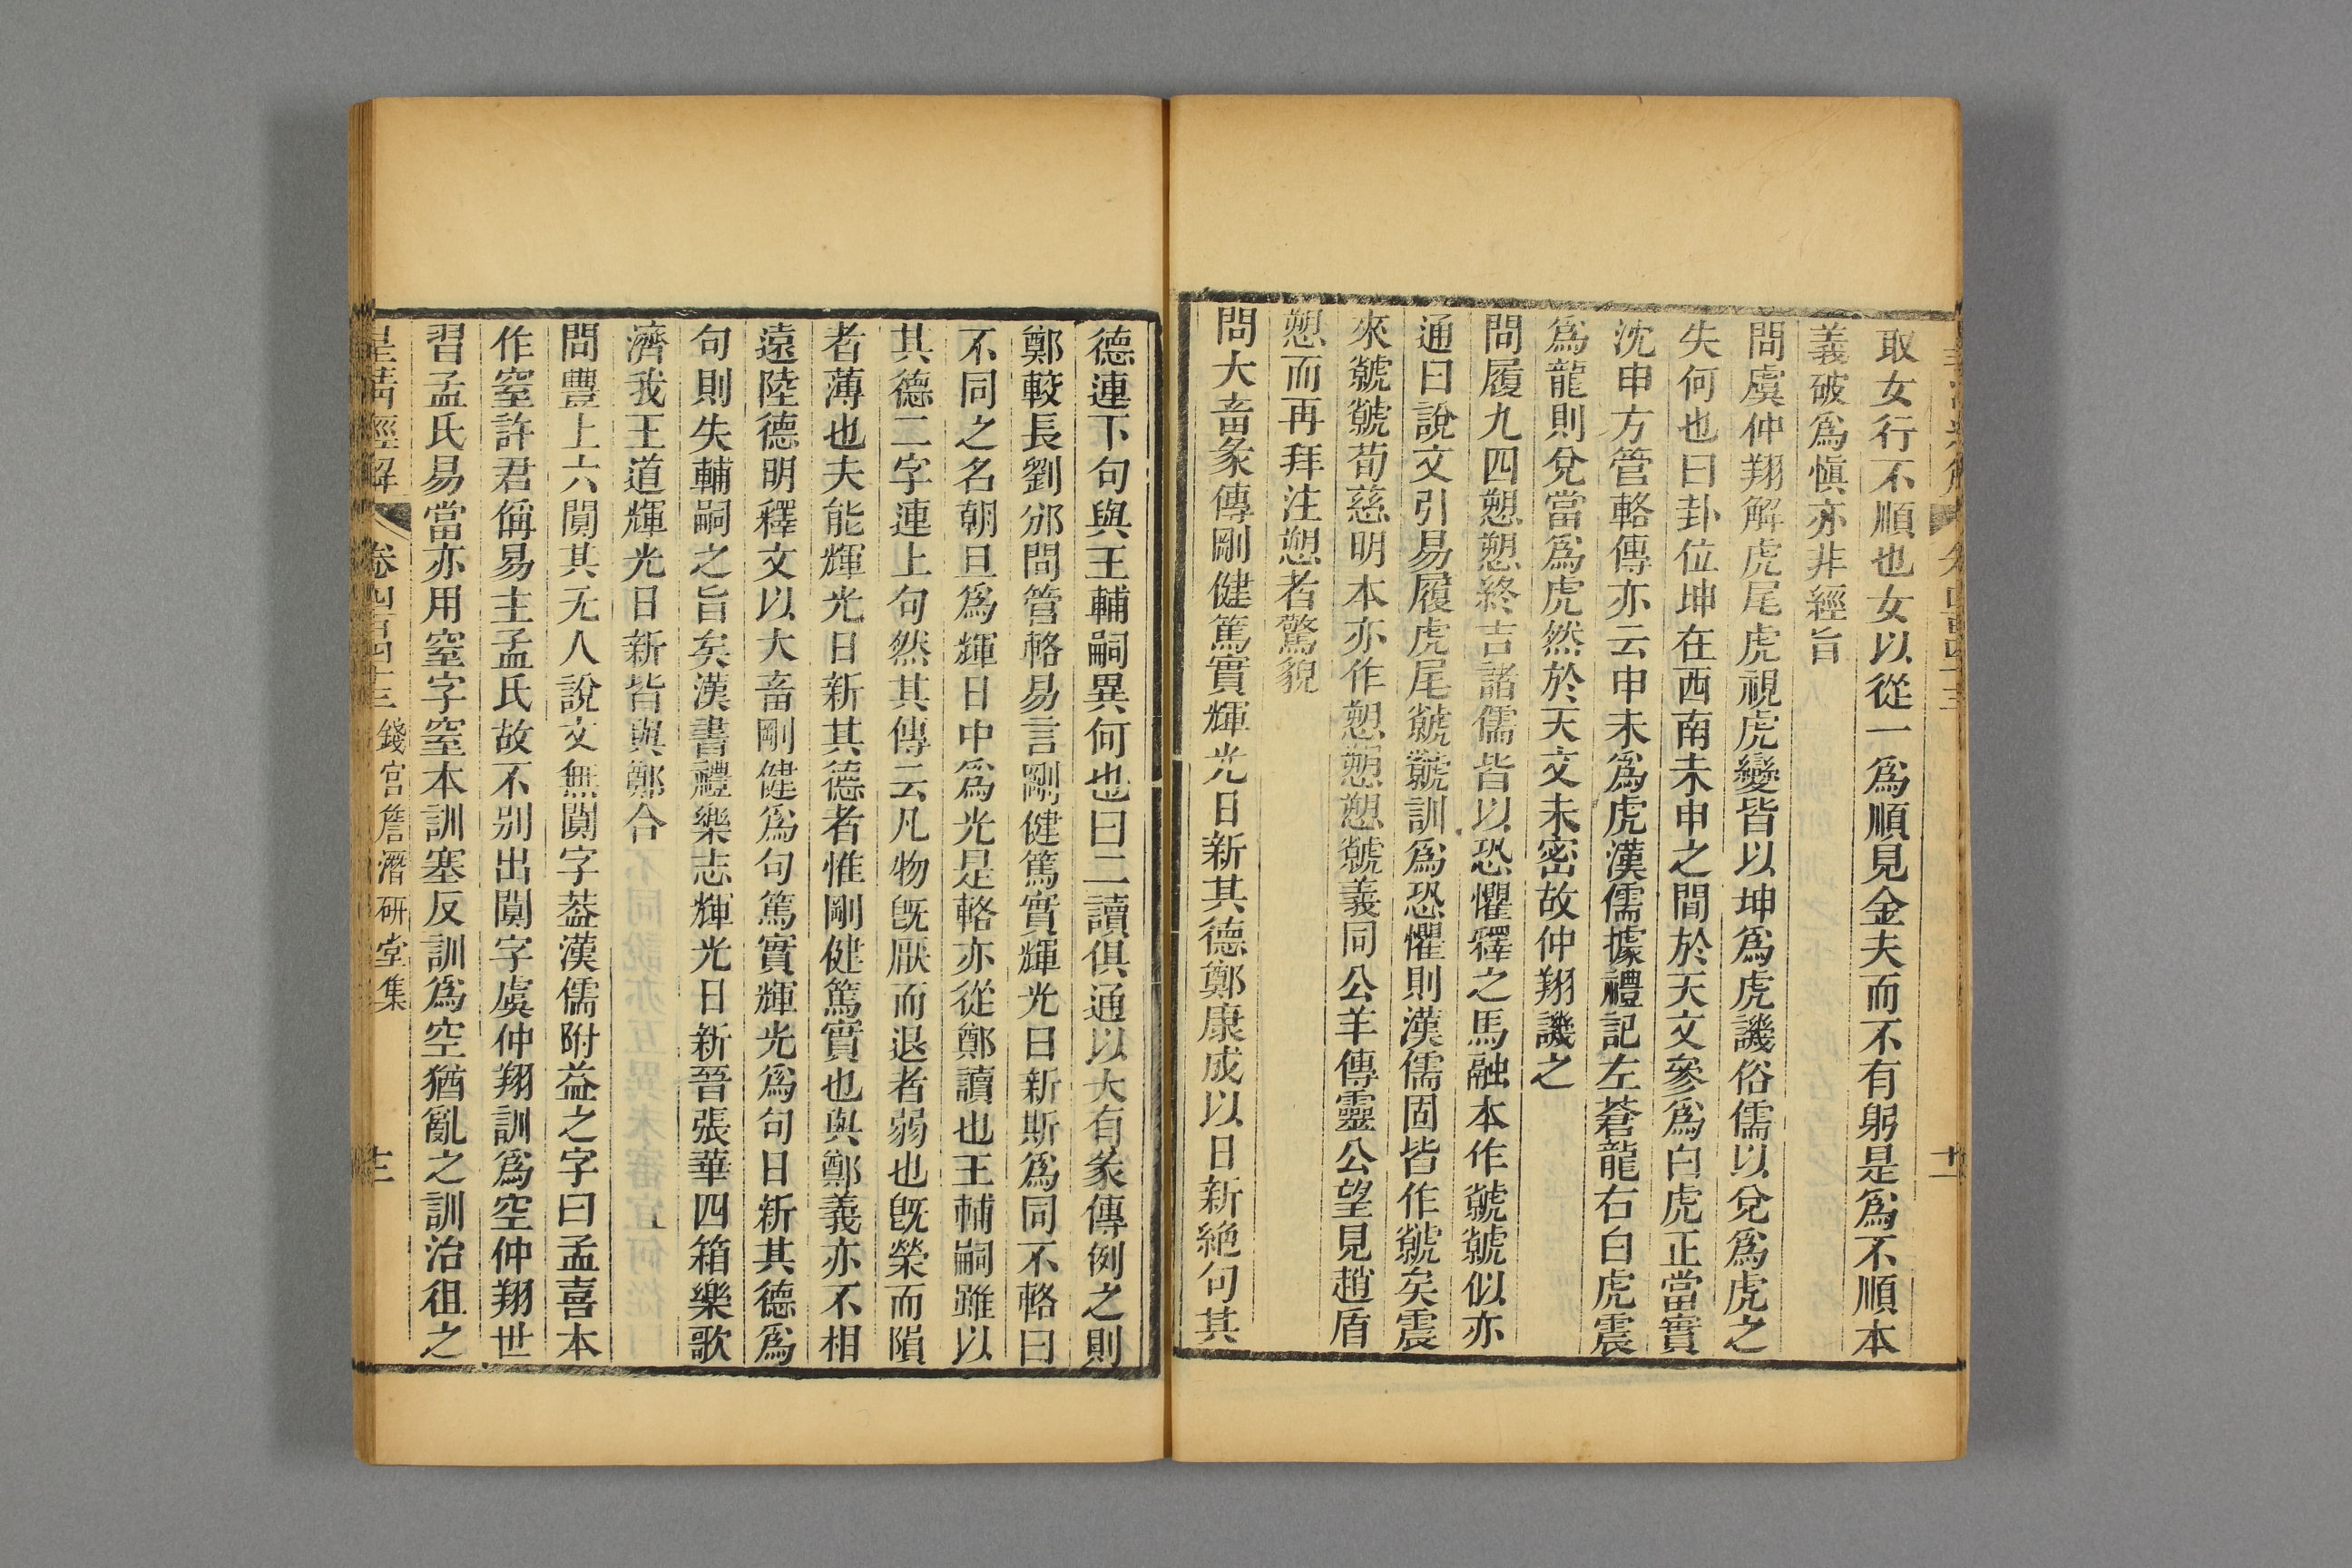 取女行不順也女以從一爲順見金夫而不有躬是爲不順本
義破爲愼亦非經旨
問虞仲翔解虎尾虎視虎變皆以坤爲虎譏俗儒以兌爲虎之
失何也曰卦位坤在西南未申之間於天文參爲白虎正當實
沈申方管輅傳亦云申未爲虎漢儒據禮記左蒼龍右白虎震
爲龍則兌當爲虎然於天文未密故仲翔譏之
問履九四愬愬終吉諸儒皆以恐懼釋之馬融本作虩虩似亦
通曰說文引易履虎尾虩虩訓爲恐懼則漢儒固皆作虩矣震
來虩虩荀慈明本亦作愬愬愬虩義同公羊傳靈公望見趙盾
愬而再拜注愬者驚貌
問大畜彖傳剛健篤實輝光日新其德鄭康成以日新絶句其
德連下句與王輔嗣異何也曰二讀俱通以大有彖傳例之則
鄭較長劉邠問管輅易言剛健篤實輝光日新斯爲同不輅曰
不同之名朝旦爲輝日中爲光是輅亦從鄭讀也王輔嗣雖以
其德二字連上句然其傳云凡物旣厭而退者弱也旣榮而隕
者薄也夫能輝光日新其德者惟剛健篤實也與鄭義亦不相
遠陸德明釋文以大畜剛健爲句篤實輝光爲句日新其德爲
句則失輔嗣之旨矣漢書禮樂志輝光日新晉張華四箱樂歌
濟我王道輝光日新皆與鄭合
問豐上六闃其无人說文無闃字葢漢儒附益之字曰孟喜本
作窒許君偁易主孟氏故不别出闃字虞仲翔訓爲空仲翔世
習孟氏易當亦用窒字窒本訓塞反訓爲空猶亂之訓治徂之
皇淸經解 卷四百四十三 錢宫詹潛研堂集 十二